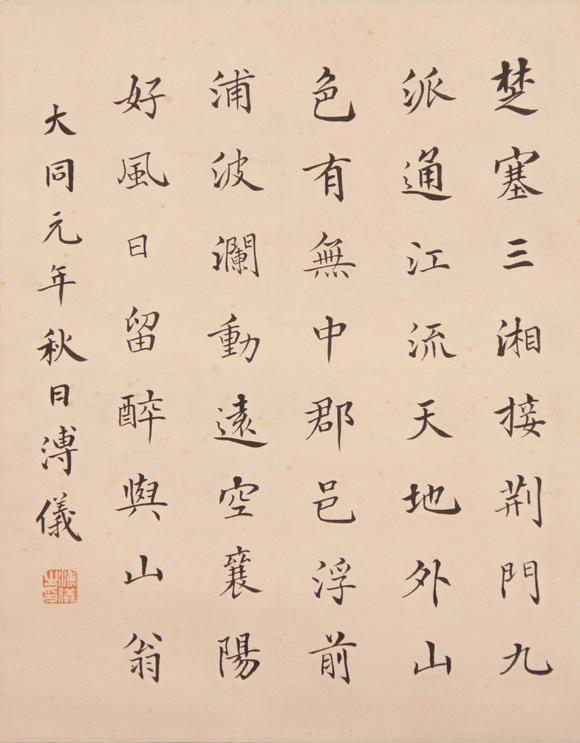 楚塞三湘接荆門九
派通江流天地外山
色有無中郡邑浮前
浦波瀾動遠空襄陽
好風日留醉與山翁
大同元年秋日溥儀
溥儀之印